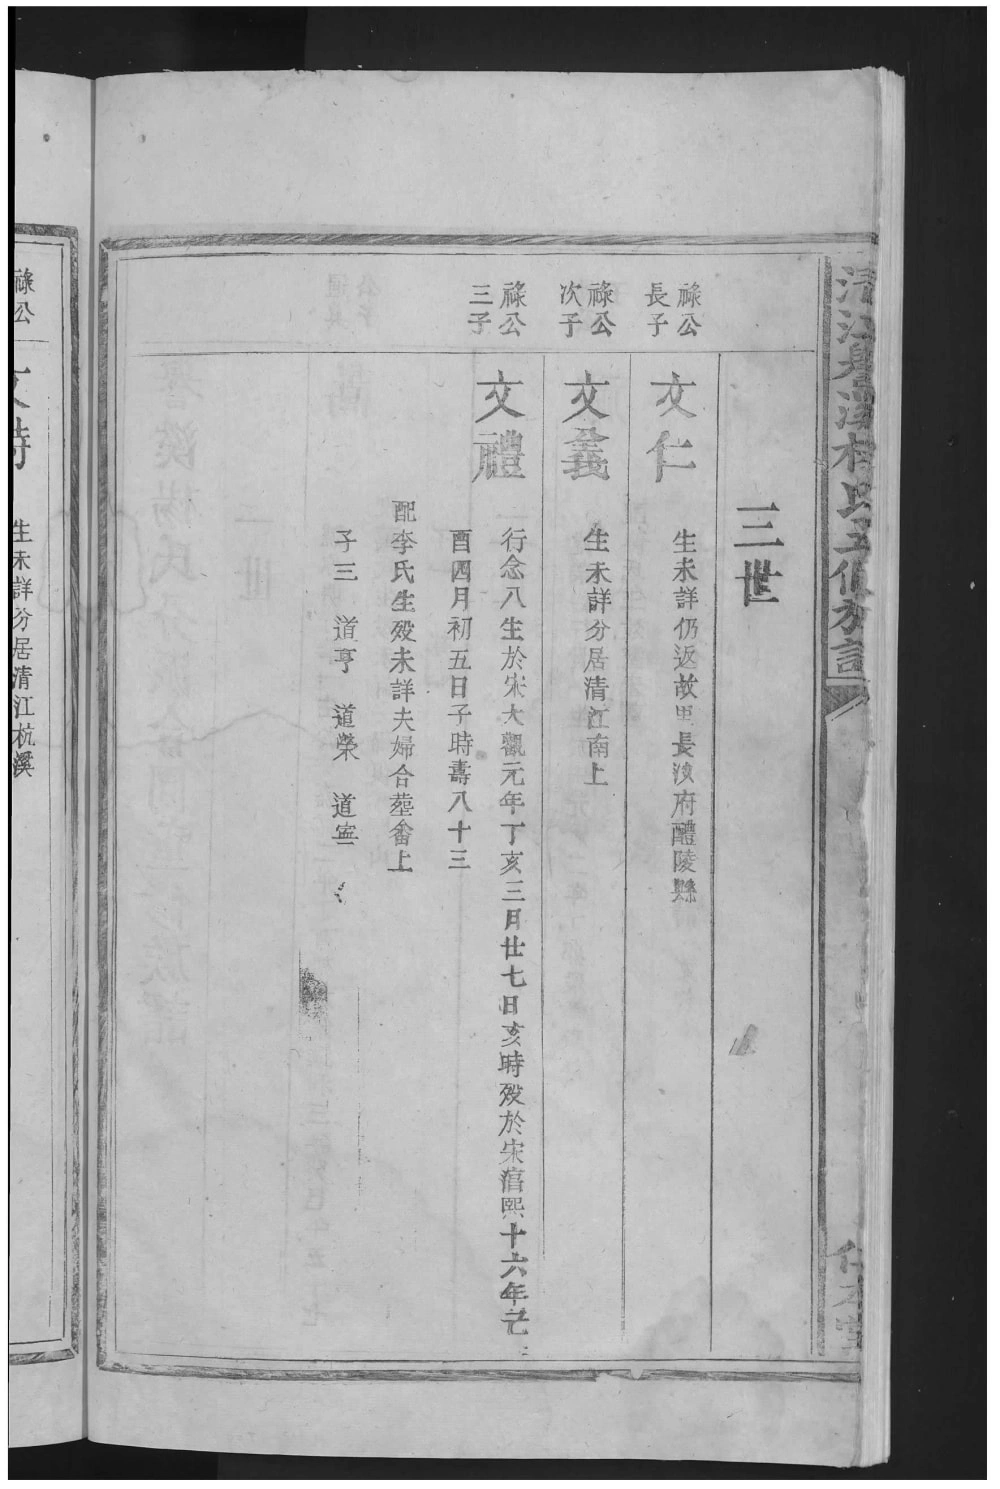 三世
祿公
長子
文仁
生未詳仍返故里長沙府醴陵縣
祿公
次子
文義
生未詳分居清江南上
祿公
三子
文禮
行念八生於宋大觀元年丁亥三月廿七日亥時歿於宋淳熙十六年己
酉四月初五日子時壽八十三
配李氏生歿未詳夫婦合塟畲上
子三 道亨 道榮 道寧
祿公
生未詳分居清江杭溪